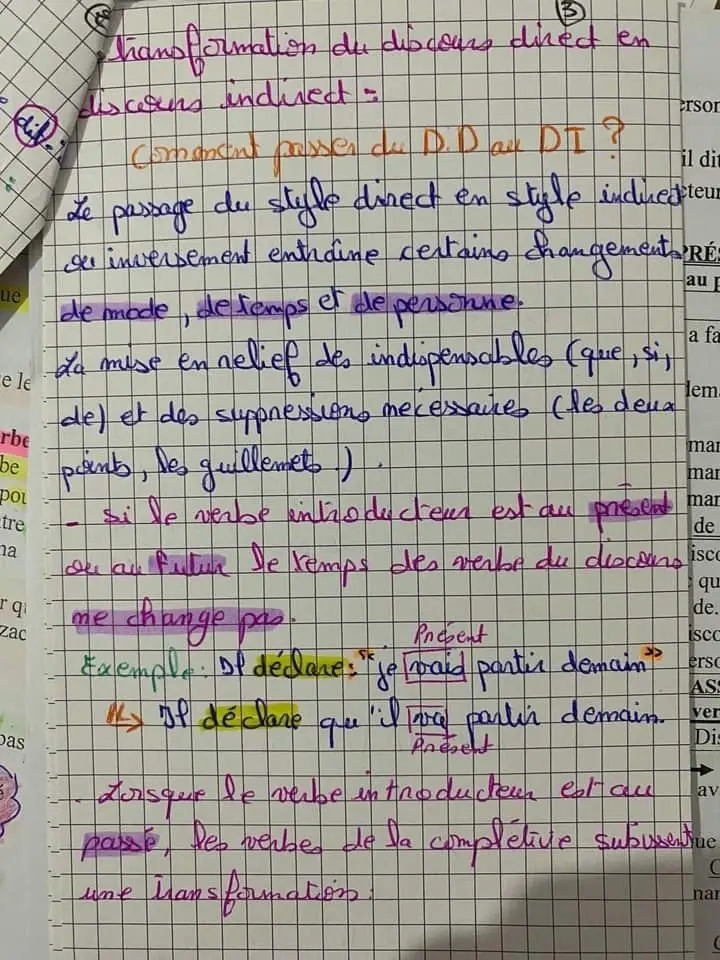 3
transformation du discours direct en
discours indirect :
dif :
Comment passer du D.D au DI ?
Le passage du style direct en style indirect
ou inversement entraîne certains changements
de mode, de temps et de personne.
La mise en relief des indispensables (que, si,
de) et des suppressions nécessaires (les deux
points, les guillemets).
- si le verbe introducteur est au présent
ou au futur le temps des verbe du discours
ne change pas.
Présent
Exemple : Il déclare : "je vais partir demain"
Il déclare qu'il va partir demain.
Présent
. Lorsque le verbe introducteur est au
passé, les verbes de la complétive subissent
une transformation :
erson
il dit
teur
au p
a fa
lem
mar
mar
mar
de
isco
qu
de.
isco
erso
ASS
ver
Dis
av
que
C
nar
ue
e le
rbe
be
pou
tre
na
r qu
zac
pas